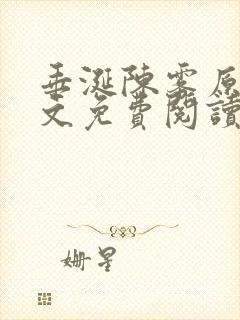 垂涎陳霧原
文免費閱讀
姍星